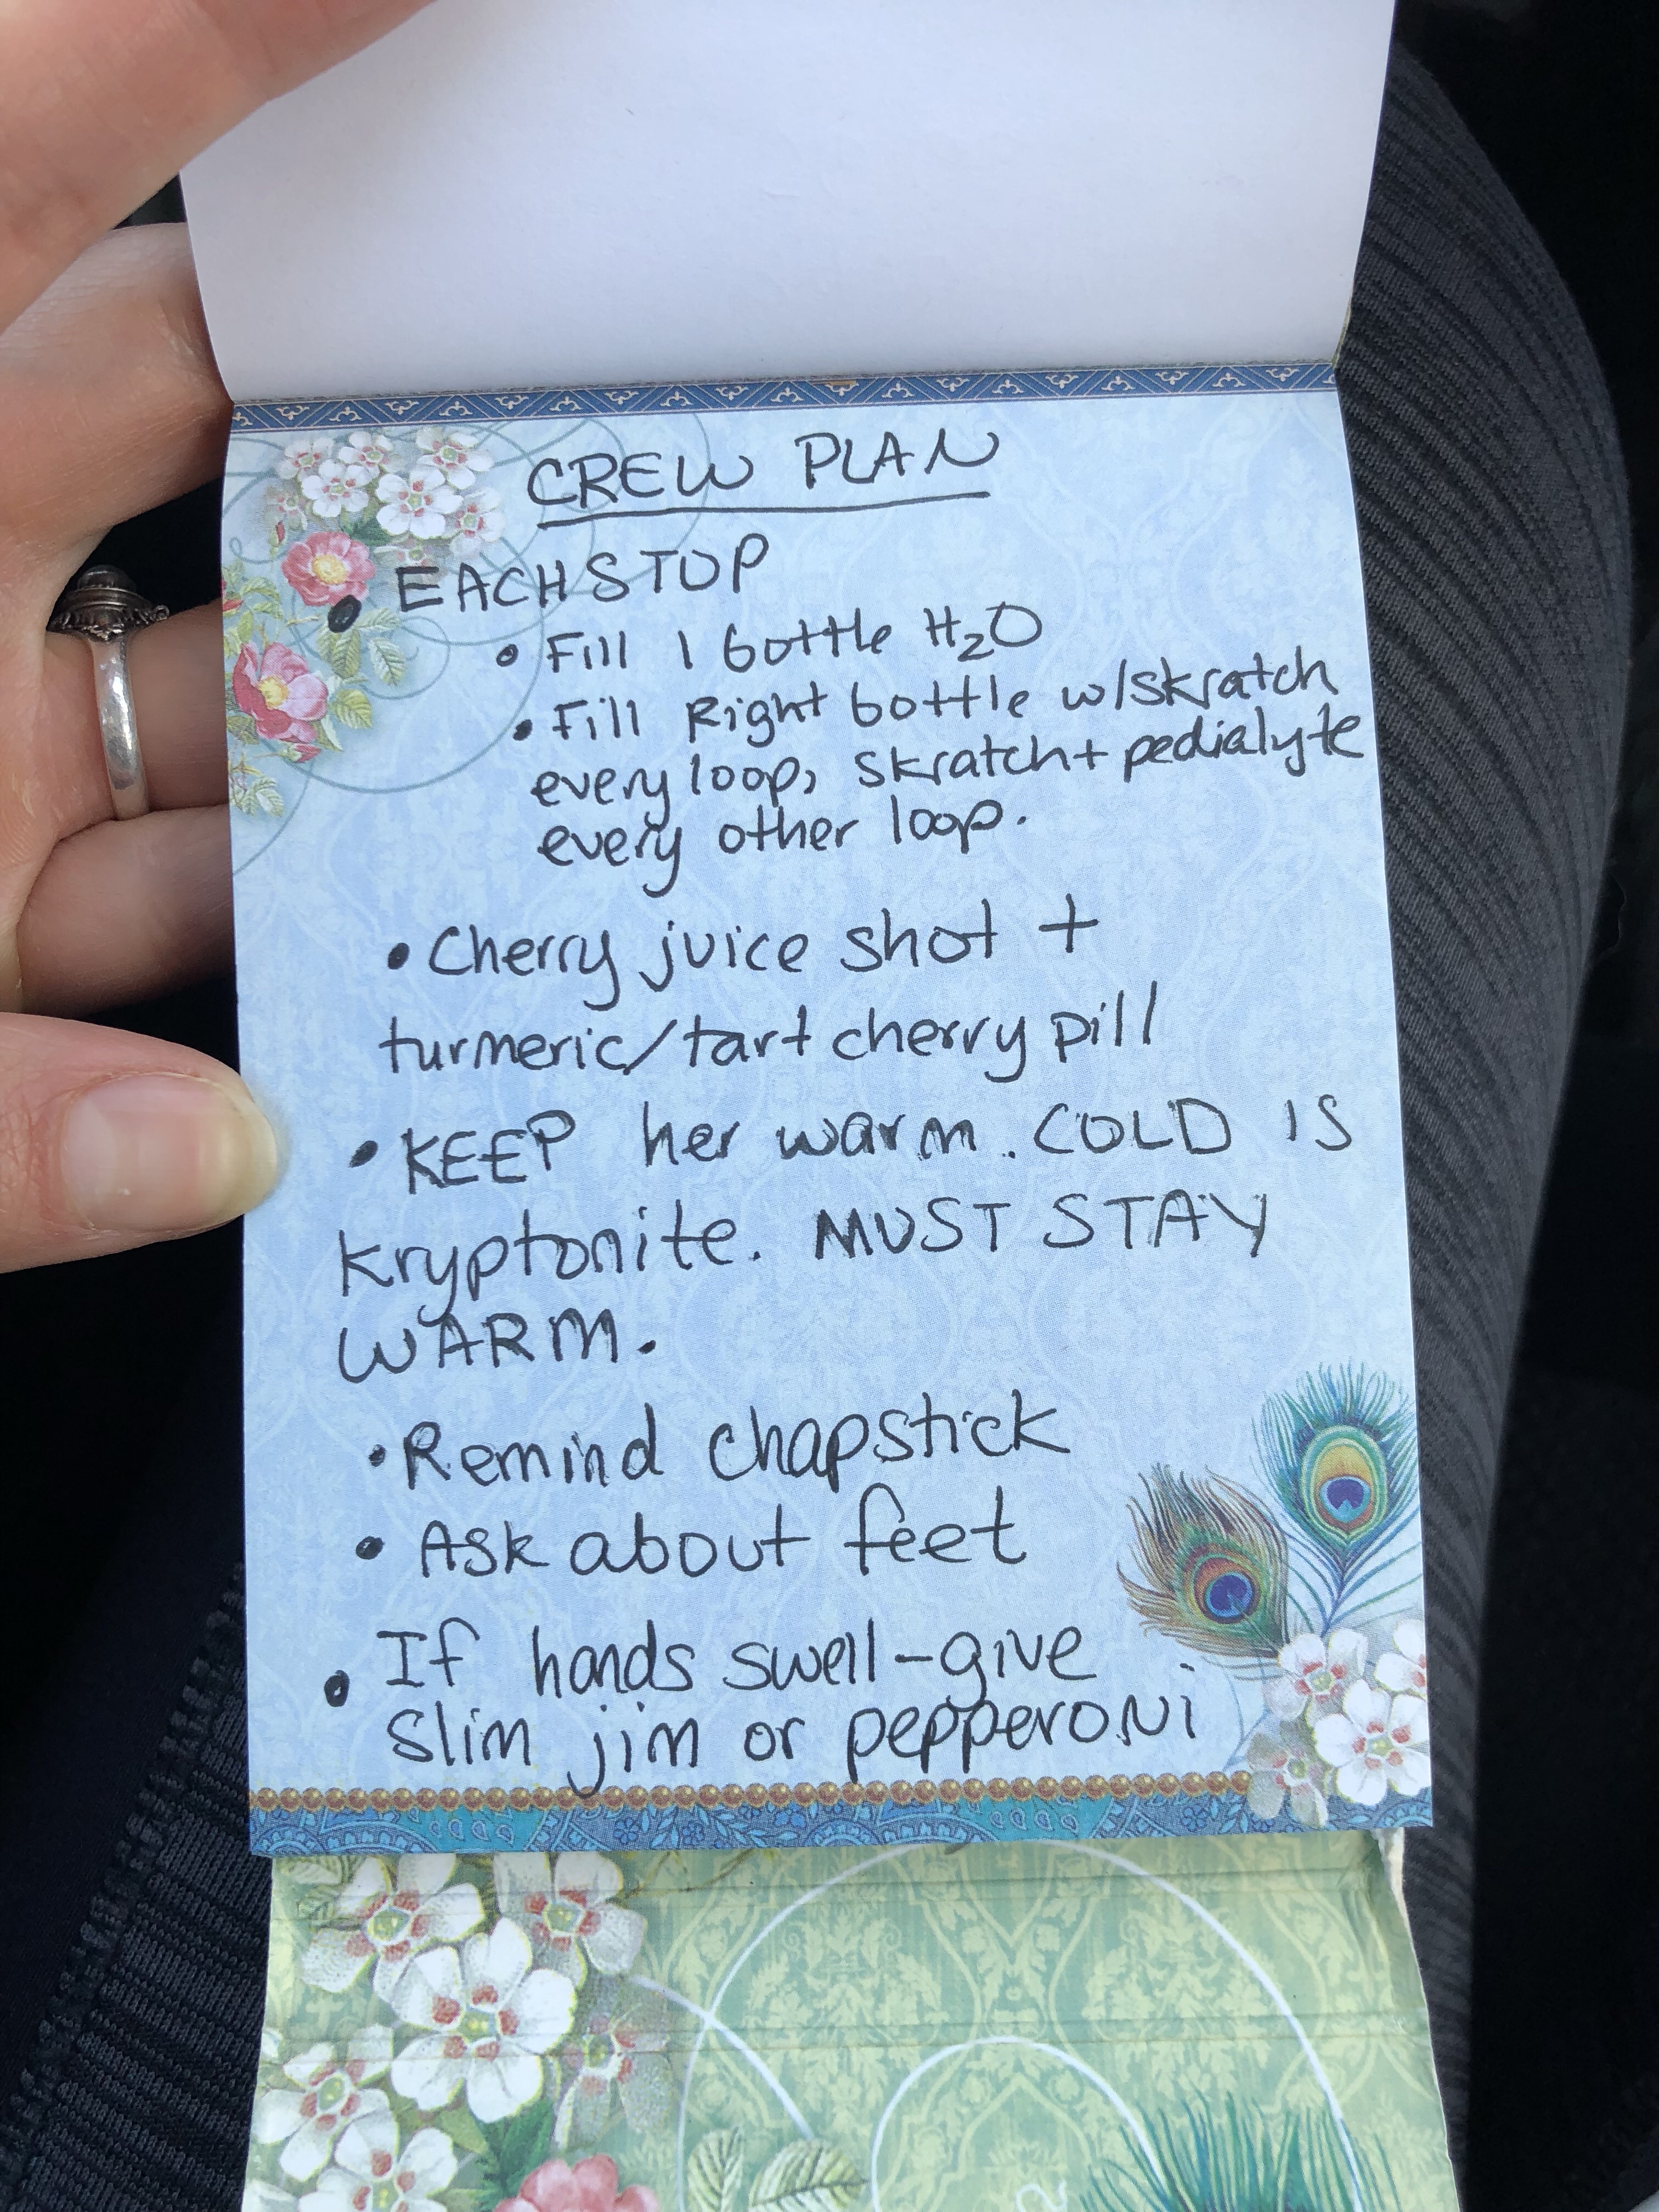 CREW PLAN
• EACH STOP
• Fill 1 bottle H₂O
• Fill Right bottle w/skratch
every loop, skratch + pedialyte
every other loop.
• Cherry juice shot +
turmeric/tart cherry pill
• KEEP her warm. COLD IS
kryptonite. MUST STAY
WARM.
• Remind chapstick
• Ask about feet
• If hands swell - give
slim jim or pepperoni
2